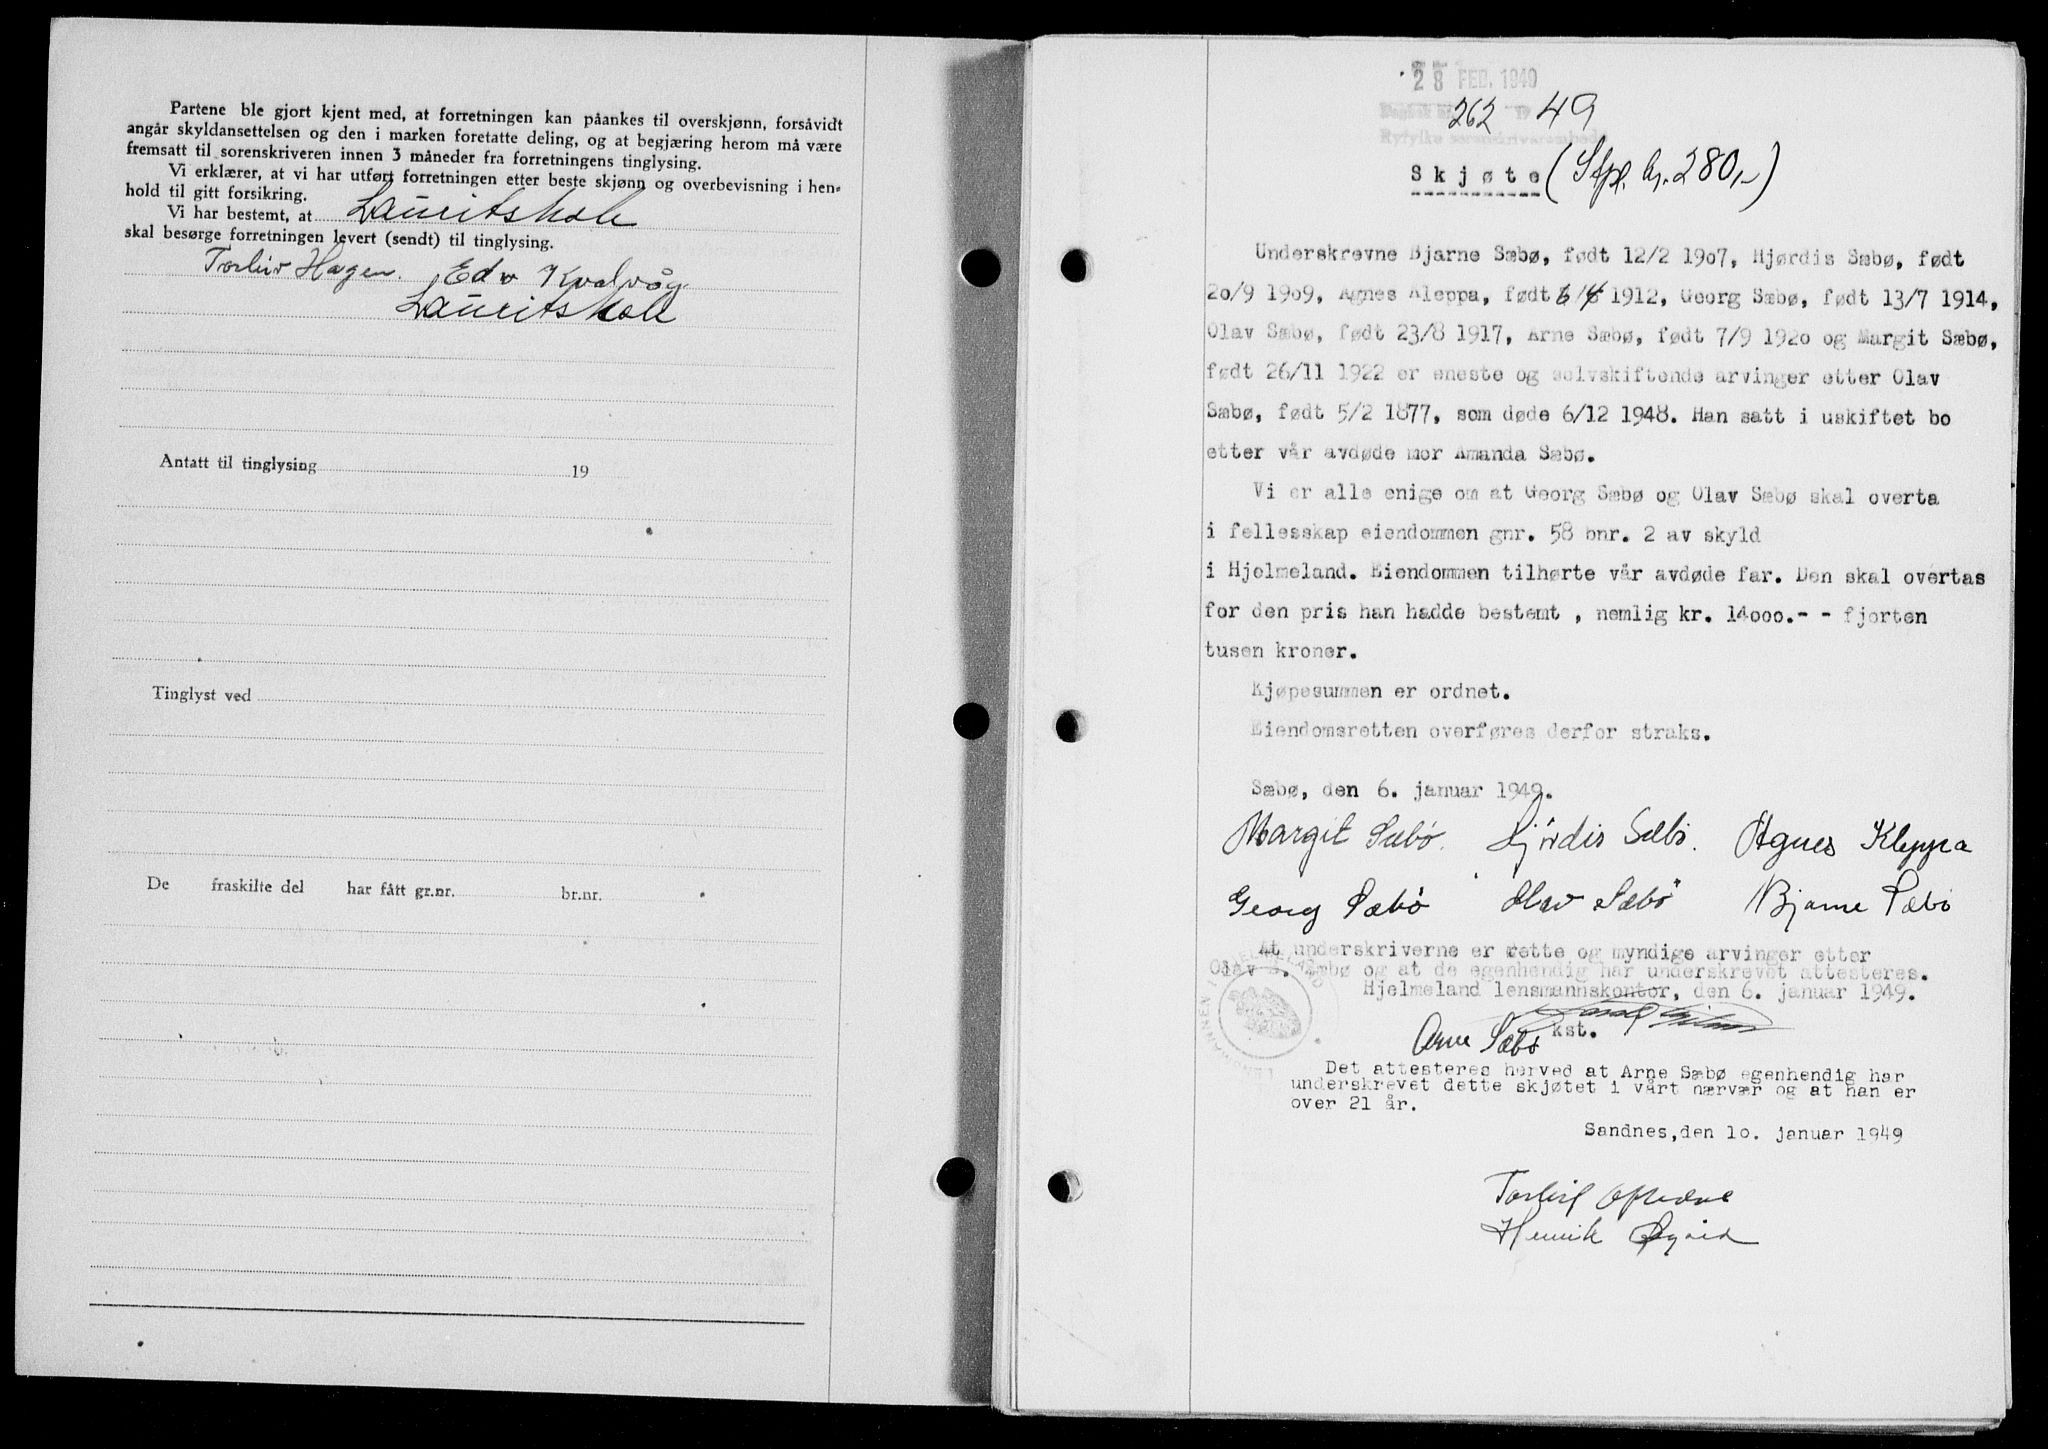 Partene ble gjort kjent med, at forretningen kan påankes til overskjønn, forsåvidt
angår skyldansettelsen og den i marken foretatte deling, og at begjæring herom må være
fremsatt til sorenskriveren innen 3 måneder fra forretningens tinglysing.
Vi erklærer, at vi har utført forretningen etter beste skjønn og overbevisning i hen-
hold til gitt forsikring.
Vi har bestemt, at Laurits Hole
skal besørge forretningen levert (sendt) til tinglysing.
Torleiv Hagen. Edv Kvalvåg
Laurits Hole
Antatt til tinglysing 19
Tinglyst ved
De fraskilte del har fått gr.nr. br.nr.
28 FEB. 1949
Dagbok nr. 262 19 49
Ryfylke sorenskriverembede
Skjøte (Stpl. kr. 280,-)
Underskrevne Bjarne Sæbø, født 12/2 1907, Hjørdis Sæbø, født
20/9 1909, Agnes Kleppa, født 1912, Georg Sæbø, født 13/7 1914,
Olav Sæbø, født 23/8 1917, Arne Sæbø, født 7/9 1920 og Margit Sæbø,
født 26/11 1922 er eneste og selvskiftende arvinger etter Olav
Sæbø, født 5/2 1877, som døde 6/12 1948. Han satt i uskiftet bo
etter vår avdøde mor Amanda Sæbø.
Vi er alle enige om at Georg Sæbø og Olav Sæbø skal overta
i fellesskap eiendommen gnr. 58 bnr. 2 av skyld
i Hjelmeland. Eiendommen tilhørte vår avdøde far. Den skal overtas
for den pris han hadde bestemt , nemlig kr. 14000.- - fjorten
tusen kroner.
Kjøpesummen er ordnet.
Eiendomsretten overføres derfor straks.
Sæbø, den 6. januar 1949.
Margit Sæbø. Hjördis Sæbö. Agnes Kleppa
Georg Sæbø Olav Sæbø Bjarne Sæbø
At underskriverne er rette og myndige arvinger etter
Olav Sæbø og at de egenhendig har underskrevet attesteres.
Hjelmeland lensmannskontor, den 6. januar 1949.
kst.
Arne Sæbø
Det attesteres herved at Arne Sæbø egenhendig har
underskrevet dette skjøtet i vårt nærvær og at han er
over 21 år.
Sandnes,den 10. januar 1949
Henrik